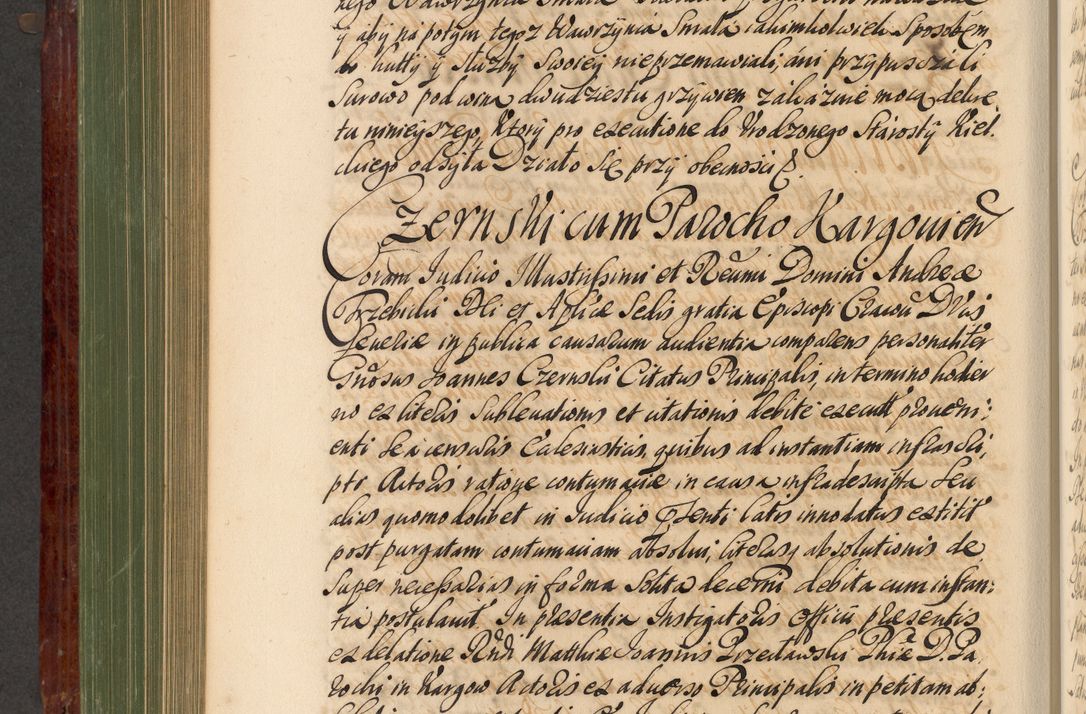 y aby na potym tego z Wawrzynia Smała iakimkolwiek sposobem
do hutty y służby swoiey nieprzemawiali, ani przypuszczali
surowo pod winą dwudziestu grzywien zakazuie mocą dekre
tu ninieyszego, Ktory pro executione do Urodzonego Starosty Kiel.
ckiego odsyła Działo się przy obecności
Czernski cum Parocho Kargouien
Coram Judicio Illustrissimi et Reũmi Domini Andreæ
Trzebicki Dei et Aplicæ Sedis gratia Episcopi Cracoũ Ducis
Seueriæ in publica causarum audientia comparens personaliter
Gnosus Joannes Czernski Citatus Principalis, in termino hodier
no ex literis subleuationis et citationis debite execut proueni:
enti se a censuris Ecclesiasticis, quibus ad instantiam infrascri,
pti Actoris ratione contumaciæ in causa infradescripta seu
alias quomodolibet in Judicio pnti latis innodatus extitit
post purgatam contumaciam absolui, literasq absolutionis de
super necessarias in forma solita decerni debita cum instan:
tia postulauit. In præsentia Instigatoris Officii præsentis
ex delatione Rndi Matthiæ Joannis Przedawski Phiæ D. Pa
rochi in Kargow Actoris ex aduerso Principalis in petitam ab: